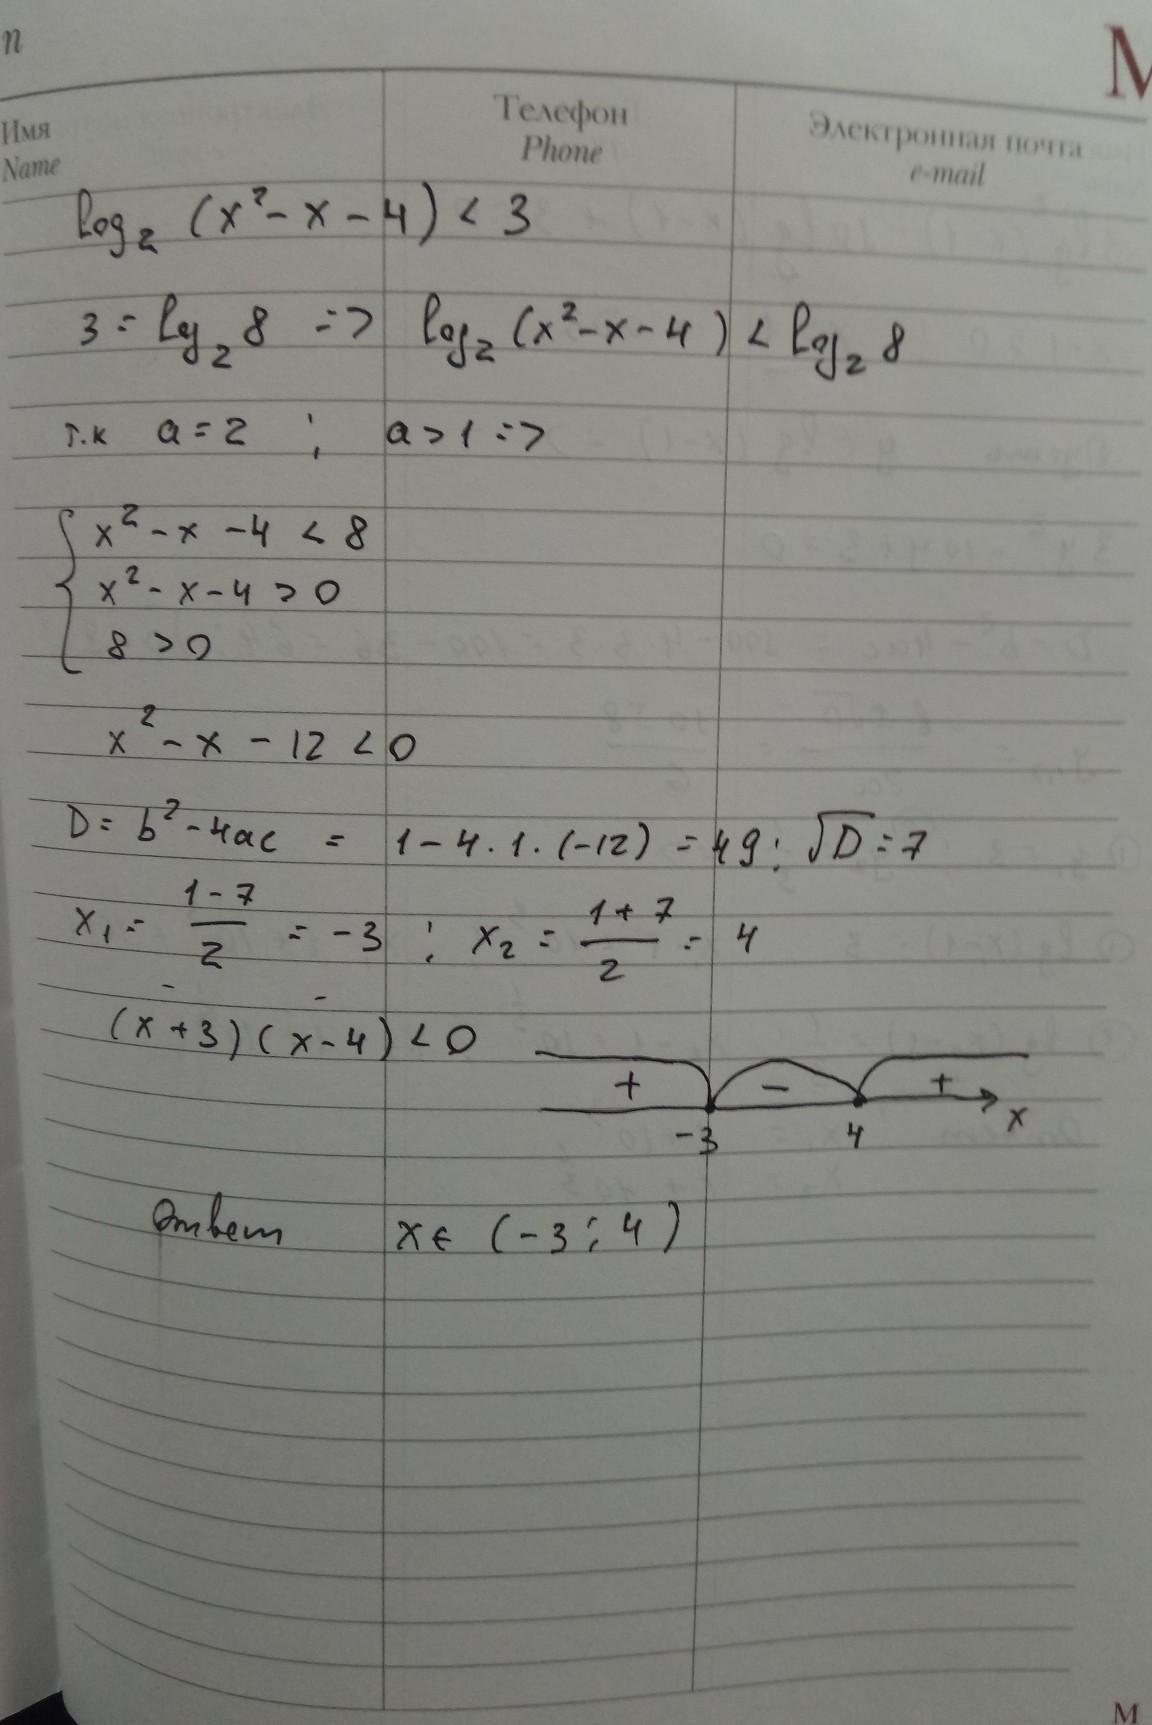 n
M
Имя
Name
Телефон
Phone
Электронная почта
e-mail
log₂ (x² - x - 4) < 3
3 = lg₂ 8 => log₂ (x² - x - 4) < log₂ 8
т.к a = 2 ; a > 1 =>
x² - x - 4 < 8
x² - x - 4 > 0
8 > 0
x² - x - 12 < 0
D = b² - 4ac = 1 - 4 · 1 · (-12) = 49 ; √D = 7
x₁ = (1 - 7)/2 = -3 ; x₂ = (1 + 7)/2 = 4
(x + 3) (x - 4) < 0
+ - +
-3 4 x
Ответ x ∈ (-3 ; 4)
M